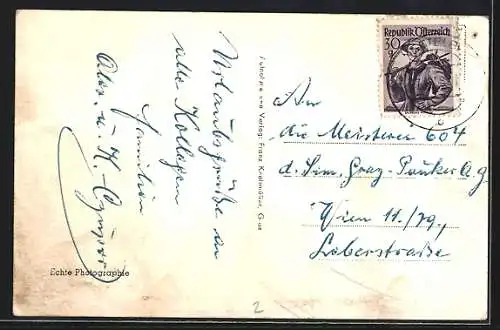 Urlaubsgrüße an
alle Kollegen
Familien
u. K.
Echte Photographie
Photographie und Verlag: Franz Knollmüller, Graz
Republik Österreich
30 g
An
die Meisterei 604
d. Sim. Graz-Pauker A.G
Wien 11/79,
Leberstraße
2